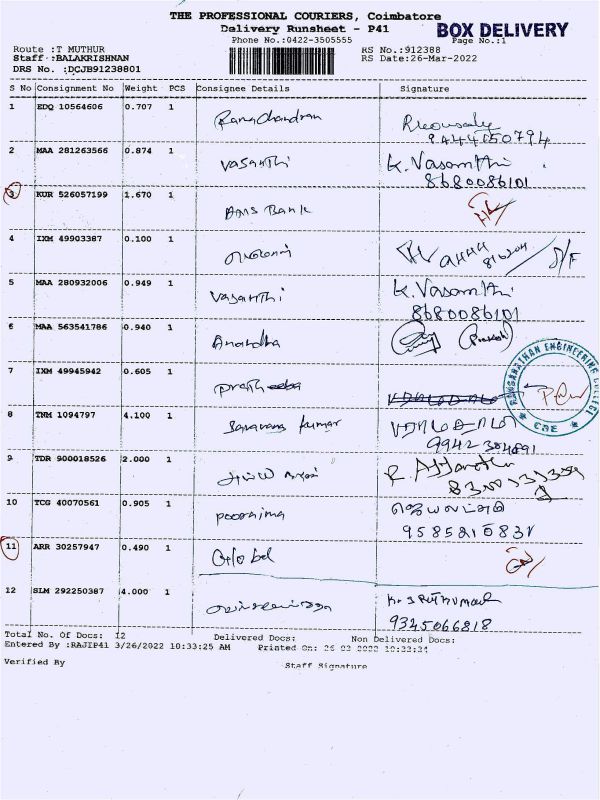 THE PROFESSIONAL COURIERS, Coimbatore
Delivery Runsheet - P41
BOX DELIVERY
Phone No.:0422-3505555
Page No.:1
Route :T MUTHUR
RS No.:912388
Staff :BALAKRISHNAN
RS Date:26-Mar-2022
DRS No. :DCJB91238801
S No Consignment No Weight PCS Consignee Details Signature
1 EDQ 10564606 0.707 1 Ramachandran
9444150794
2 MAA 281263566 0.874 1 Vasanthi K. Vasanthi
8680086101
3 KUR 526057199 1.670 1 Bank
4 IXM 49903387 0.100 1
5 MAA 280932006 0.949 1 Vasanthi K. Vasanthi
8680086101
6 MAA 563541786 0.940 1 Anandha (Prakash)
7 IXM 49945942 0.605 1
RANGANATHAN ENGINEERING COLLEGE
CBE
8 TNM 1094797 4.100 1 Saravana kumar
9942304691
9 TDR 900018526 2.000 1
10 TCG 40070561 0.905 1 poornima
9585816831
11 ARR 30257947 0.490 1 Global
12 SLM 292250387 4.000 1
9345066818
Total No. Of Docs: 12 Delivered Docs: Non Delivered Docs:
Entered By :RAJIP41 3/26/2022 10:33:25 AM Printed On: 26 03 2022 10:33:24
Verified By Staff Signature